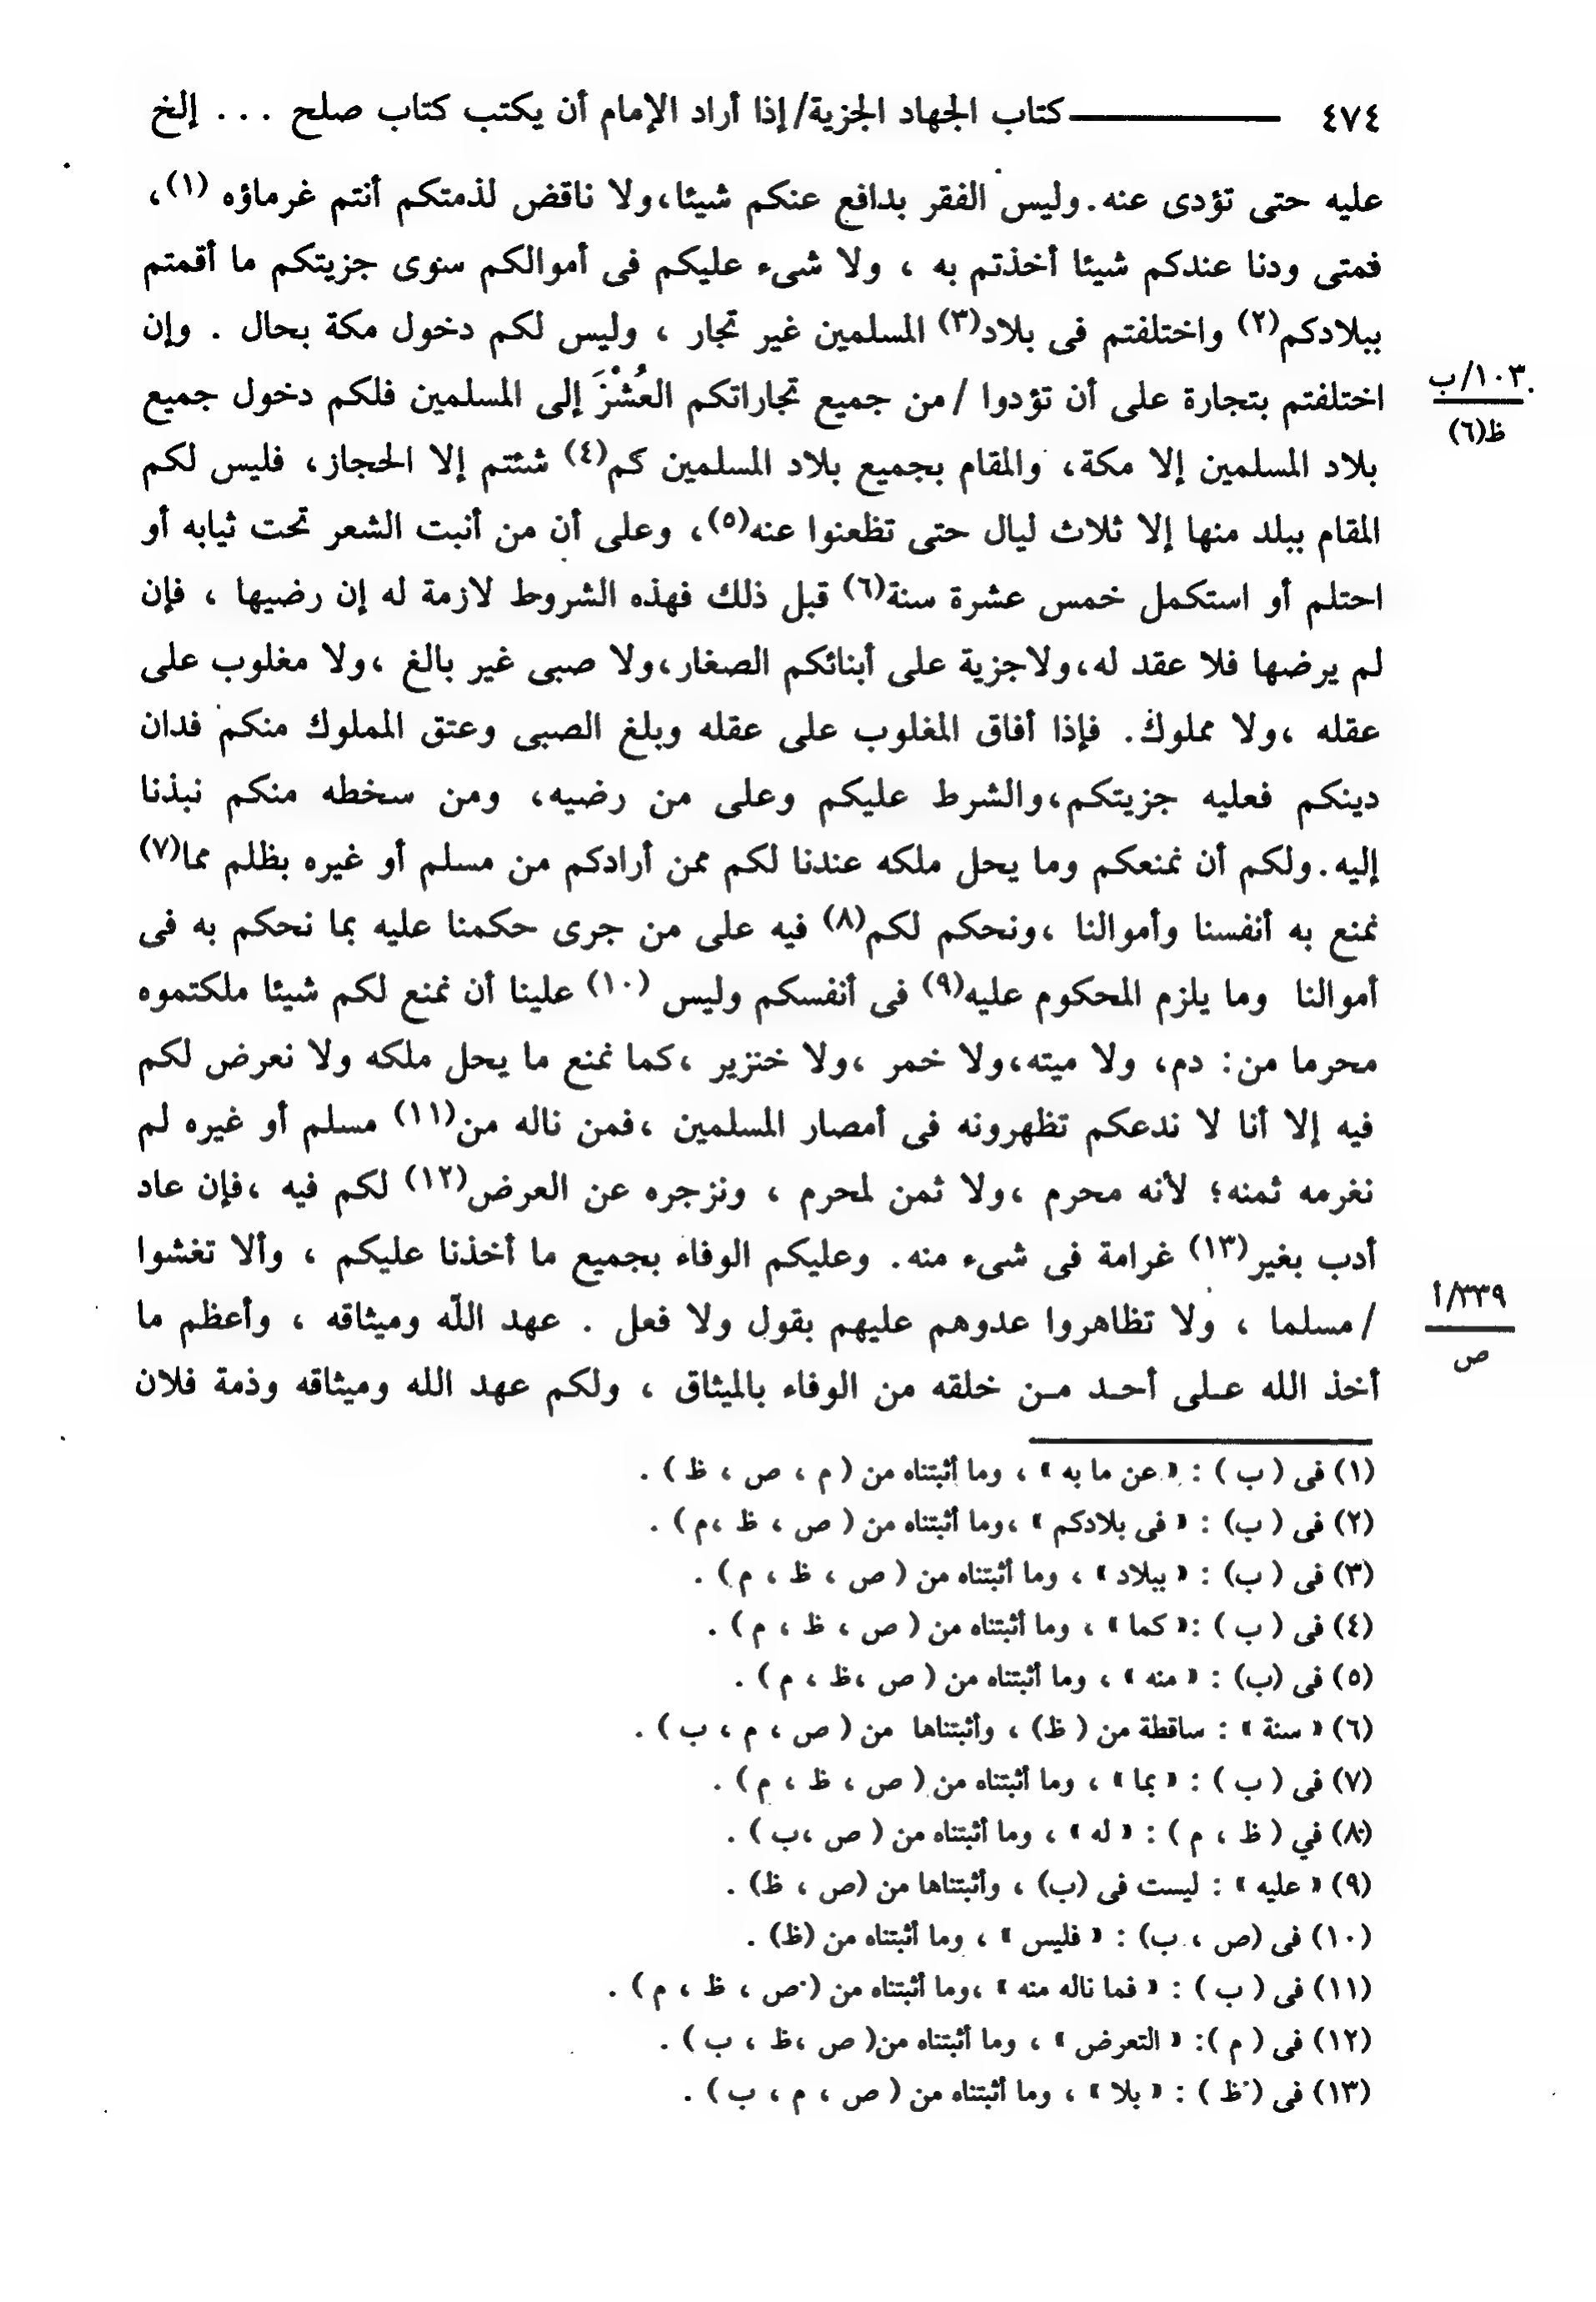 ٤٧٤ ــــــــــ كتاب الجهاد الجزية/إذا أراد الإمام أن يكتب كتاب صلح . . . إلخ
عليه حتى تؤدى عنه. وليس الفقر بدافع عنكم شيئا، ولا ناقض لذمتكم أنتم غرماؤه (١)،
فمتى ودنا عندكم شيئا أخذتم به ، ولا شىء عليكم فى أموالكم سوى جزيتكم ما أقمتم
ببلادكم(٢) واختلفتم فى بلاد(٣) المسلمين غير تجار ، وليس لكم دخول مكة بحال . وإن
اختلفتم بتجارة على أن تؤدوا /من جميع تجاراتكم العُشْرَ إلى المسلمين فلكم دخول جميع
١٠٣/ب
ظ(٦)
بلاد المسلمين إلا مكة، والمقام بجميع بلاد المسلمين كم(٤) شئتم إلا الحجاز، فليس لكم
المقام ببلد منها إلا ثلاث ليال حتى تظعنوا عنه(٥)، وعلى أن من أنبت الشعر تحت ثيابه أو
احتلم أو استكمل خمس عشرة سنة(٦) قبل ذلك فهذه الشروط لازمة له إن رضيها ، فإن
لم يرضها فلا عقد له، ولاجزية على أبنائكم الصغار، ولا صبى غير بالغ ، ولا مغلوب على
عقله ، ولا مملوك. فإذا أفاق المغلوب على عقله وبلغ الصبى وعتق المملوك منكم فدان
دينكم فعليه جزيتكم، والشرط عليكم وعلى من رضيه، ومن سخطه منكم نبذنا
إليه. ولكم أن نمنعكم وما يحل ملكه عندنا لكم ممن أرادكم من مسلم أو غيره بظلم مما(٧)
نمنع به أنفسنا وأموالنا ، ونحكم لكم(٨) فيه على من جرى حكمنا عليه بما نحكم به فى
أموالنا وما يلزم المحكوم عليه(٩) فى أنفسكم وليس (١٠) علينا أن نمنع لكم شيئا ملكتموه
محرما من: دم، ولا ميته، ولا خمر ، ولا خنزير ، كما نمنع ما يحل ملكه ولا نعرض لكم
فيه إلا أنا لا ندعكم تظهرونه فى أمصار المسلمين ، فمن ناله من(١١) مسلم أو غيره لم
نغرمه ثمنه؛ لأنه محرم ، ولا ثمن لمحرم ، ونزجره عن العرض(١٢) لكم فيه ، فإن عاد
أدب بغير(١٣) غرامة فى شىء منه. وعليكم الوفاء بجميع ما أخذنا عليكم ، وألا تغشوا
/مسلما ، ولا تظاهروا عدوهم عليهم بقول ولا فعل . عهد اللّه وميثاقه ، وأعظم ما
٣٣٩/أ
ص
أخذ الله على أحد من خلقه من الوفاء بالميثاق ، ولكم عهد الله وميثاقه وذمة فلان
(١) فى ( ب ) : « عن ما به » ، وما أثبتناه من ( م ، ص ، ظ ) .
(٢) فى ( ب) : « فى بلادكم » ، وما أثبتناه من ( ص ، ظ ، م ) .
(٣) فى ( ب) : « ببلاد » ، وما أثبتناه من ( ص ، ظ ، م ) .
(٤) فى ( ب ) : « كما » ، وما أثبتناه من ( ص ، ظ ، م ) .
(٥) فى (ب) : « منه » ، وما أثبتناه من ( ص ، ظ ، م ) .
(٦) « سنة » : ساقطة من ( ظ) ، وأثبتناها من ( ص ، م ، ب ) .
(٧) فى ( ب ) : « بما » ، وما أثبتناه من ( ص ، ظ ، م ) .
(٨) في ( ظ ، م ) : « له » ، وما أثبتناه من ( ص ، ب ) .
(٩) « عليه » : ليست فى (ب) ، وأثبتناها من (ص ، ظ) .
(١٠) فى (ص ، ب) : « فليس » ، وما أثبتناه من (ظ) .
(١١) فى ( ب ) : « فما ناله منه » ، وما أثبتناه من ( ص ، ظ ، م ) .
(١٢) فى ( م ): « التعرض » ، وما أثبتناه من( ص ، ظ ، ب ) .
(١٣) فى ( ظ ) : « بلا » ، وما أثبتناه من ( ص ، م ، ب ) .